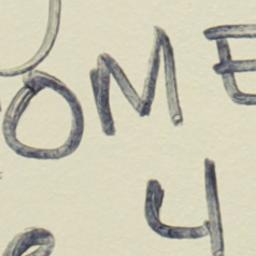 OME
4